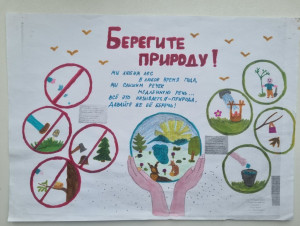 БЕРЕГИТЕ
ПРИРОДУ!
МЫ ЛЮБИМ ЛЕС
В ЛЮБОЕ ВРЕМЯ ГОДА,
МЫ СЛЫШИМ РЕЧЕК
МЕДЛЕННУЮ РЕЧЬ...
ВСЁ ЭТО НАЗЫВАЕТСЯ-ПРИРОДА,
ДАВАЙТЕ ЖЕ ЕЁ БЕРЕЧЬ!